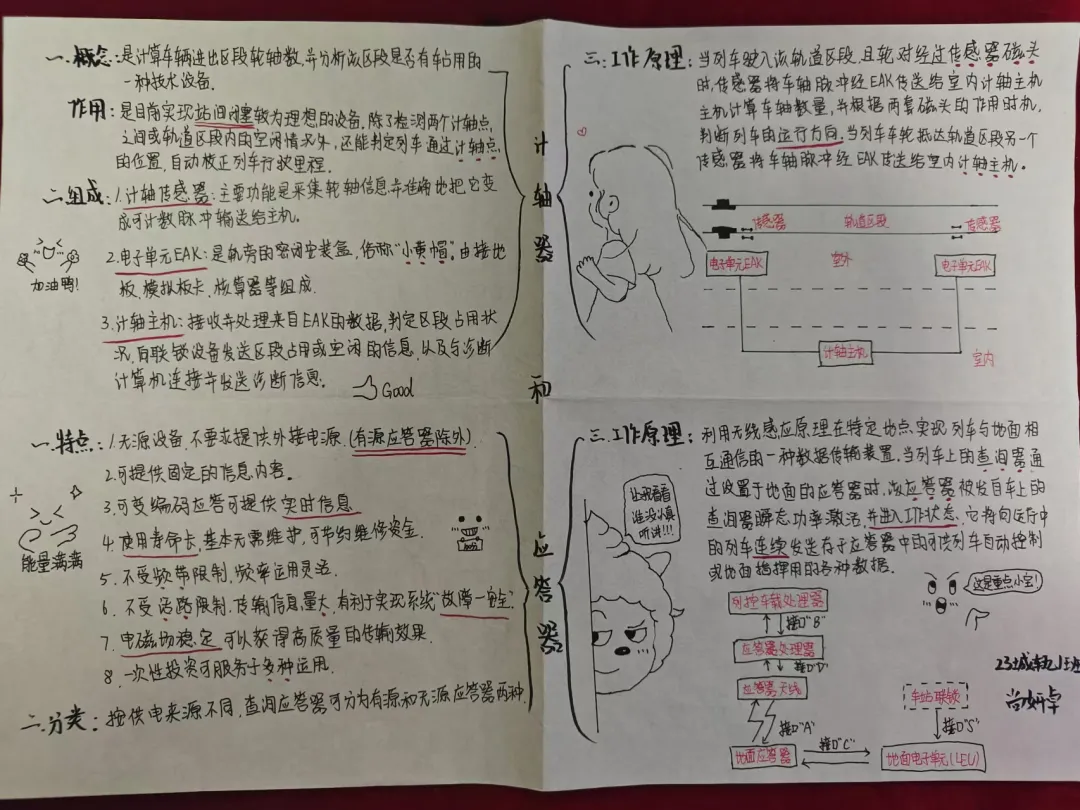 一.概念:是计算车辆进出区段轮轴数,并分析该区段是否有车占用的
一种技术设备.
作用:是目前实现站间闭塞较为理想的设备.除了检测两个计轴点
之间或轨道区段内的空闲情况外,还能判定列车通过计轴点
的位置,自动校正列车行驶里程.
二.组成:1.计轴传感器:主要功能是采集轮轴信息并准确地把它变
成可计数脉冲输送给主机。
2.电子单元EAK:是轨旁的密闭安装盒,俗称“小黄帽”.由接地
板、模拟板卡、核算器等组成.
3.计轴主机:接收并处理来自EAK的数据,判定区段占用状
况,向联锁设备发送区段占用或空闲的信息,以及与诊断
计算机连接并发送诊断信息。
加油鸭!
Good
计轴器
和
应答器
三.工作原理:当列车驶入该轨道区段,且轮对经过传感器磁头
时,传感器将车轴脉冲经EAK传送给室内计轴主机
主机计算车轴数量,并根据两套磁头的作用时机,
判断列车的运行方向;当列车车轮抵达轨道区段另一个
传感器将车轴脉冲经EAK传送给室内计轴主机。
传感器
轨道区段
传感器
电子单元EAK
室外
电子单元EAK
计轴主机
室内
一.特点:1.无源设备.不要求提供外接电源.(有源应答器除外).
2.可提供固定的信息内容。
3.可变编码应答可提供实时信息
4.使用寿命长,基本无需维护,可节约维修资金.
5.不受频带限制,频率运用灵活.
6.不受话路限制.传输信息量大,有利于实现系统“故障—安全”.
7.电磁场稳定可以获得高质量的传输效果.
8.一次性投资可服务于多种运用.
二.分类:按供电来源不同,查询应答器可分为有源和无源应答器两种.
能量满满
三.工作原理:利用无线感应原理在特定地点实现列车与地面相
互通信的一种数据传输装置.当列车上的查询器通
过设置于地面的应答器时,该应答器被发自车上的
查询器瞬态功率激活,并进入工作状态,它将向运行中
的列车连续发送存于应答器中的可供列车自动控制
或地面指挥用的各种数据.
让我看看
谁没认真
听讲!!!
这是重点小宝!
列控车载处理器
接口“B”
应答器处理器
接口“D”
应答器天线
接口“A”
地面应答器
接口“C”
地面电子单元(LEU)
车站联锁
接口“S”
23城轨1班
尚妍卓